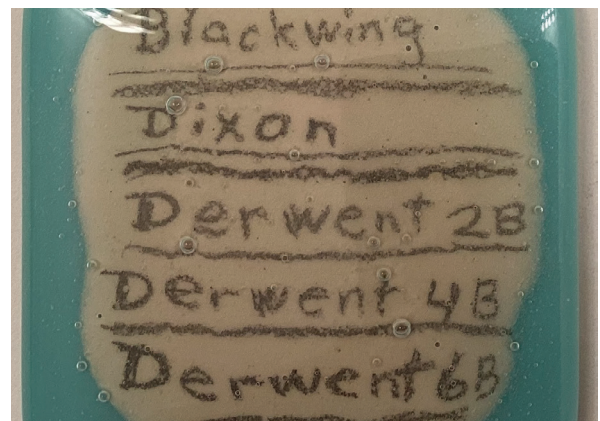 Blackwing
Dixon
Derwent 2B
Derwent 4B
Derwent 6B